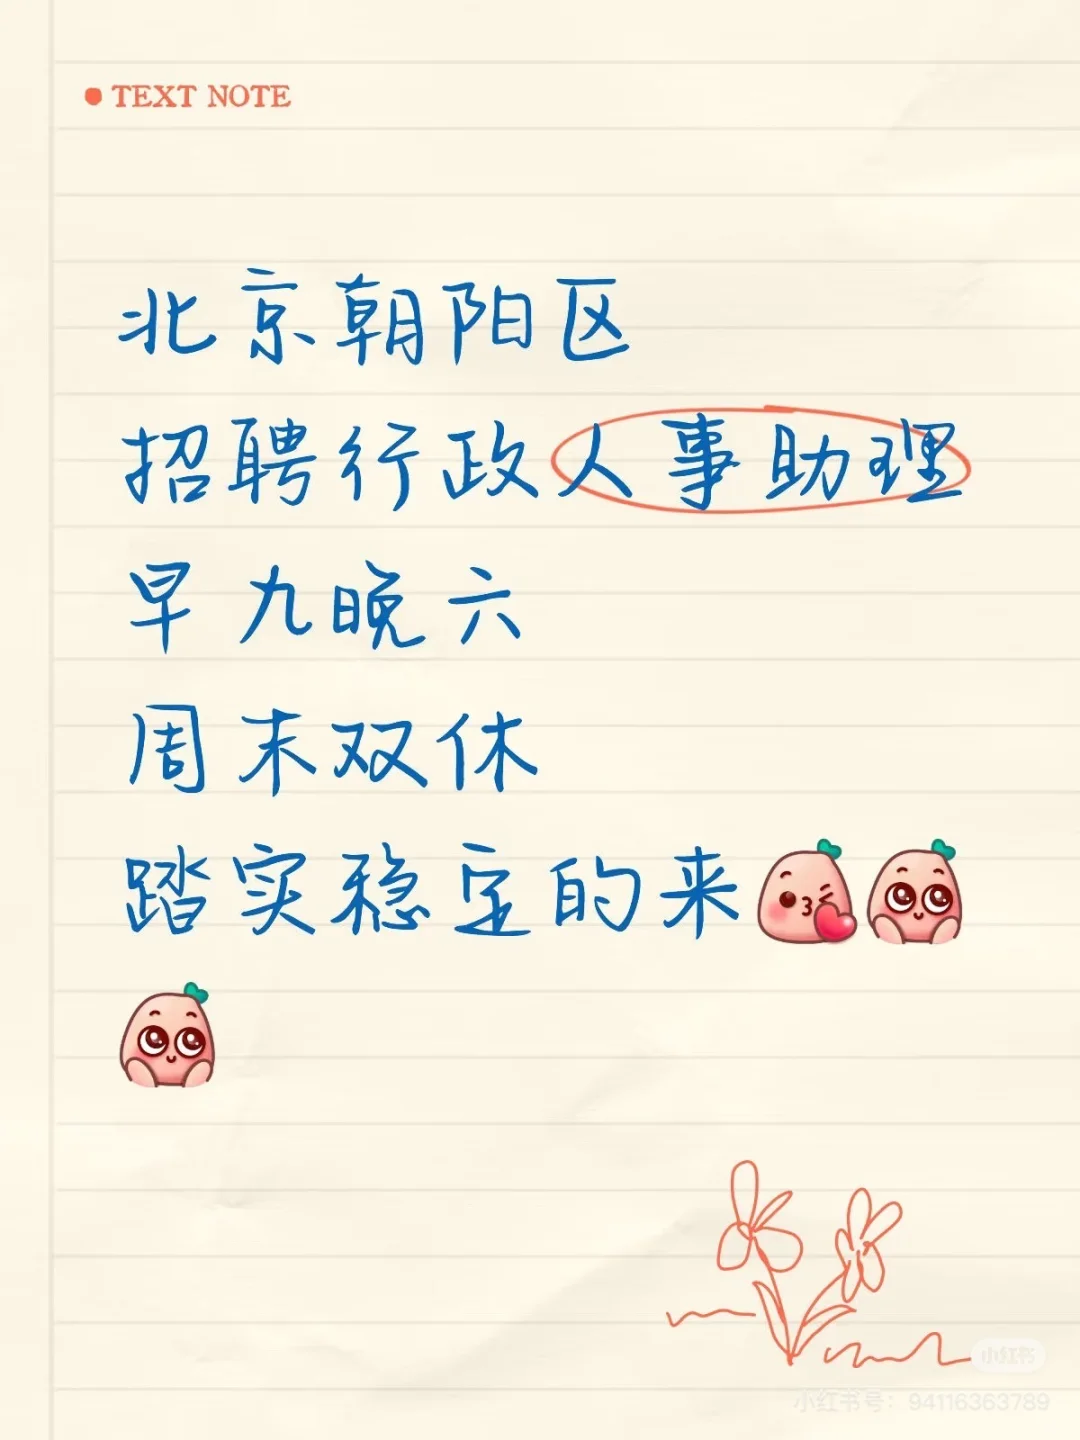 TEXT NOTE
北京朝阳区
招聘行政人事助理
早九晚六
周末双休
踏实稳定的来
小红书
小红书号：94116363789